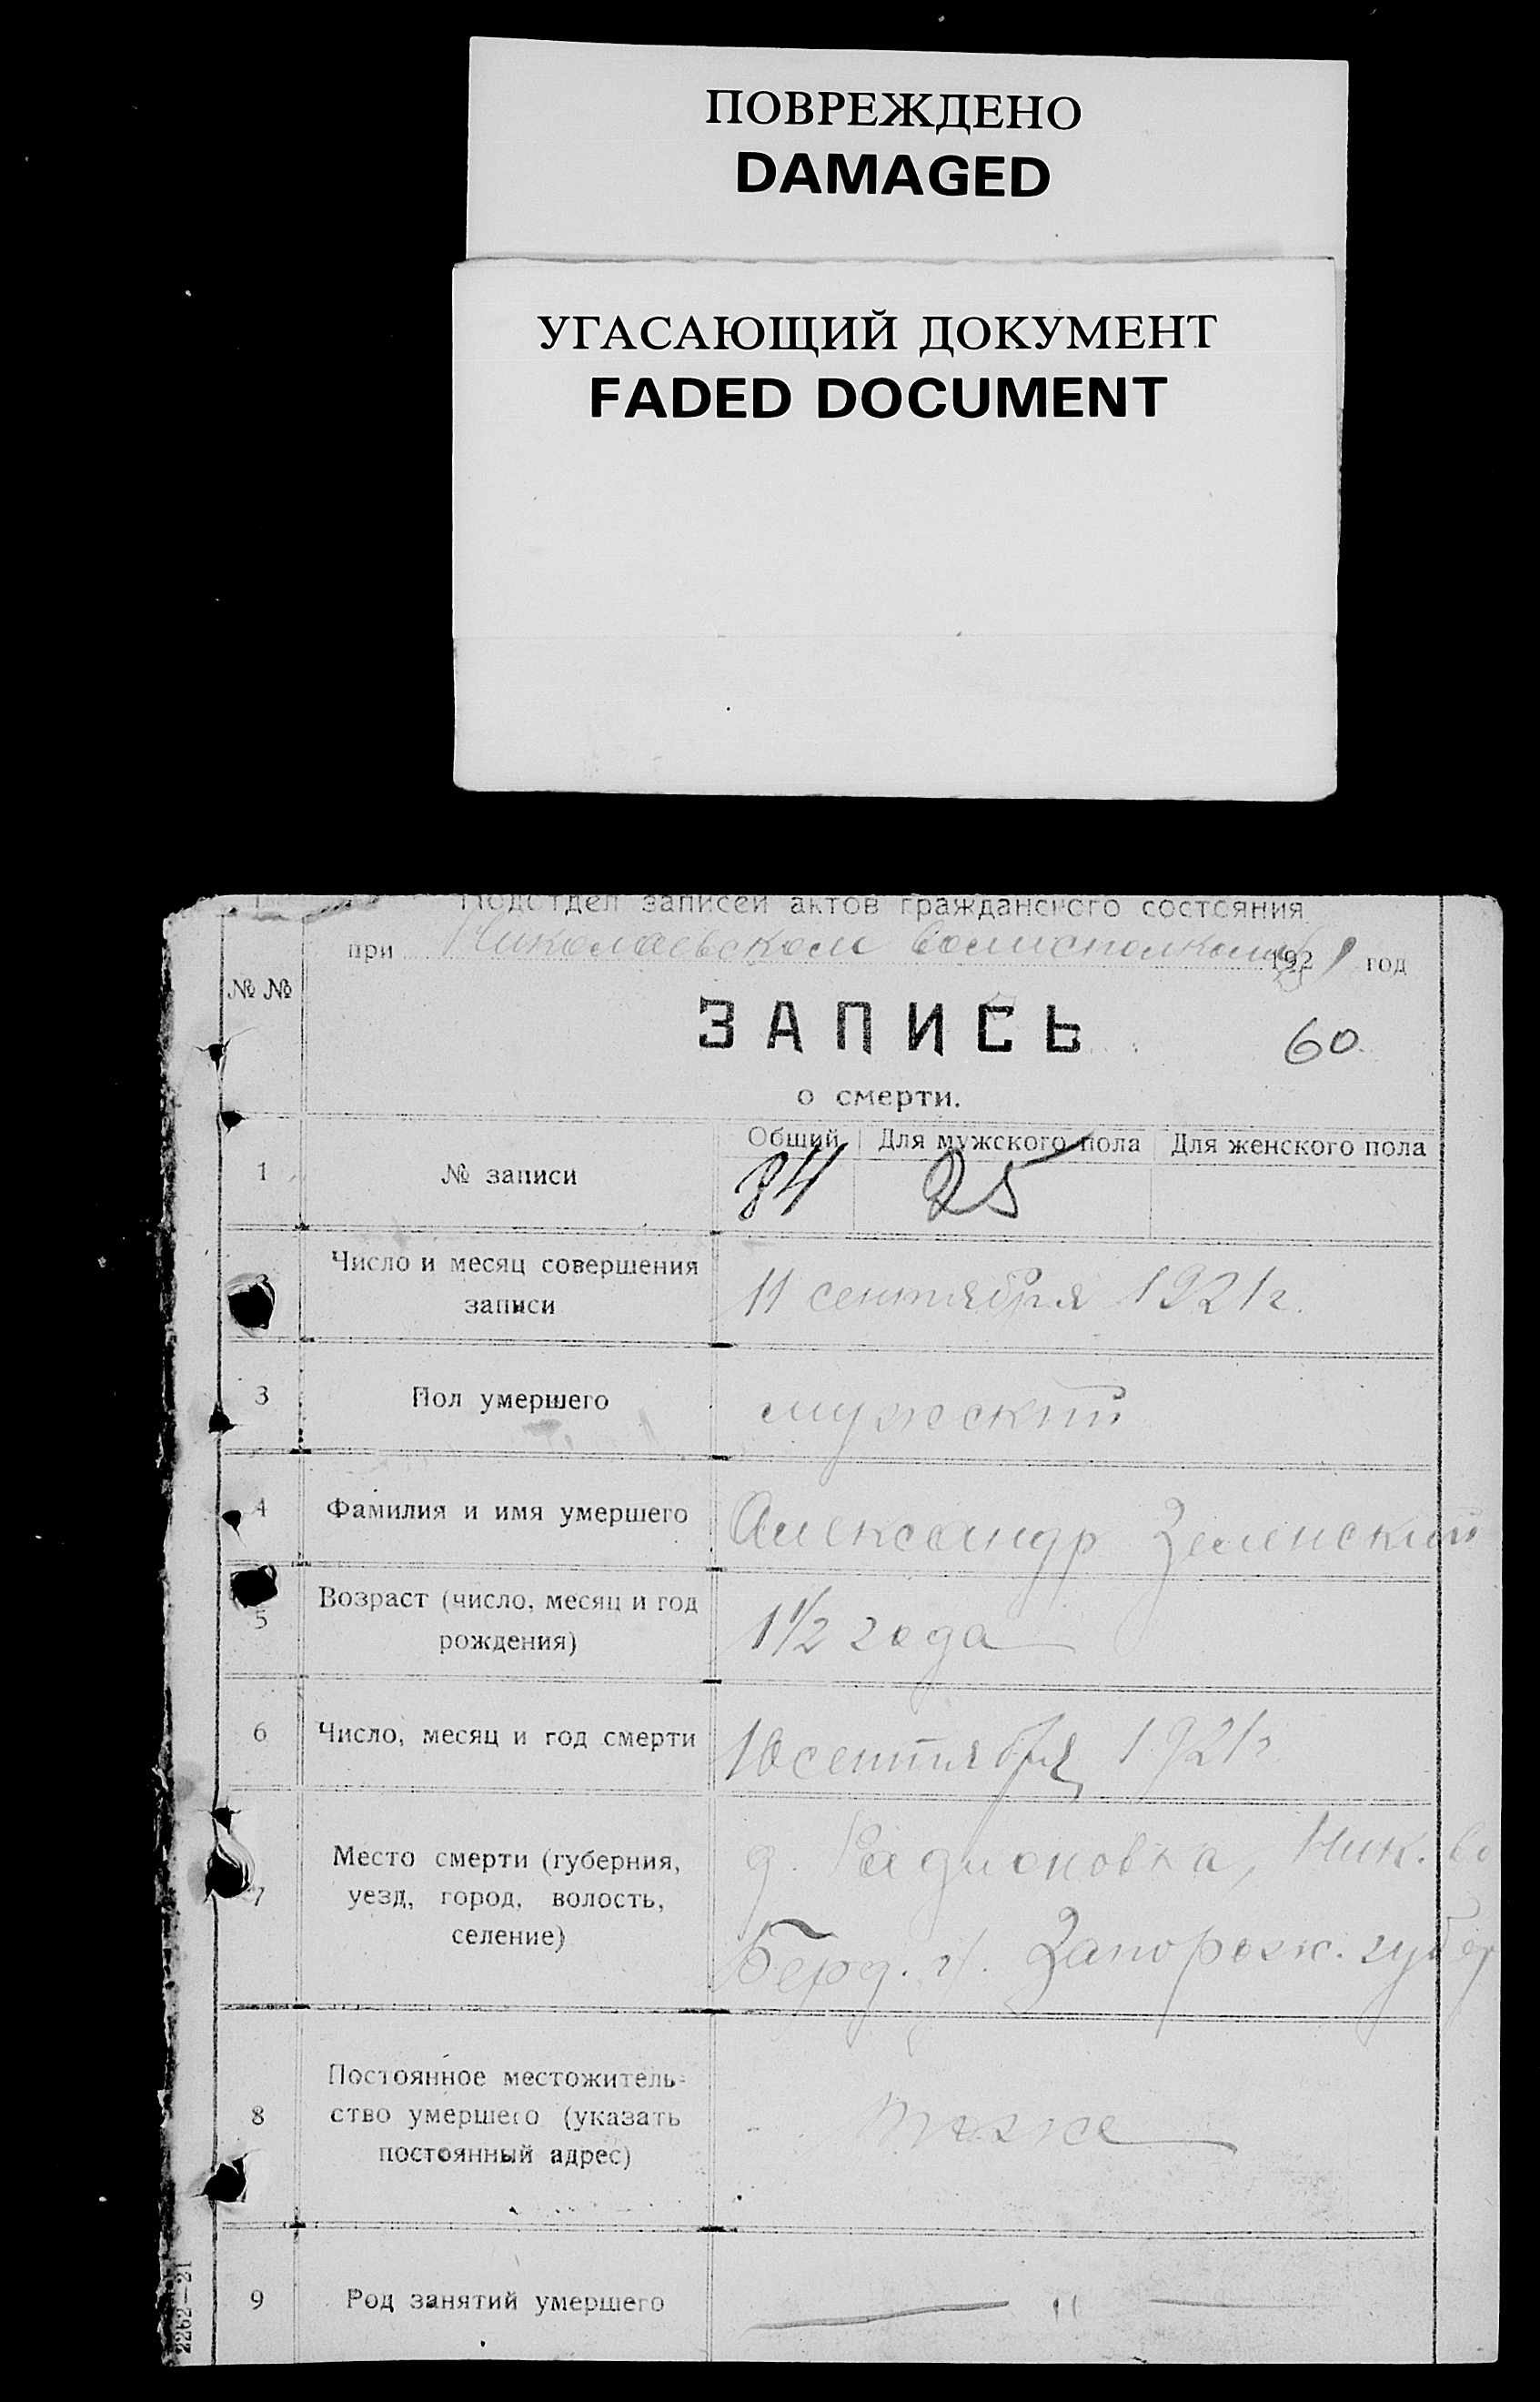 ПОВРЕЖДЕНО
DAMAGED
УГАСАЮЩИЙ ДОКУМЕНТ
FADED DOCUMENT
Подотдел записей актов гражданского состояния
при Николаевском волисполкоме 1921 год
№ №
ЗАПИСЬ
60
о смерти.
Общий Для мужского пола Для женского пола
1 № записи 84 25
Число и месяц совершения
записи 11 сентября 1921 г.
3 Пол умершего мужский
4 Фамилия и имя умершего Александр Зеленский
5 Возраст (число, месяц и год
рождения) 1 1/2 года
6 Число, месяц и год смерти 10 сентября 1921 г
Место смерти (губерния, д. Радионовка, Ник. во
7 уезд, город, волость,
селение) Берд. у. Запорож. губер
Постоянное местожитель-
8 ство умершего (указать тоже
постоянный адрес)
9 Род занятий умершего — " —
2262—21